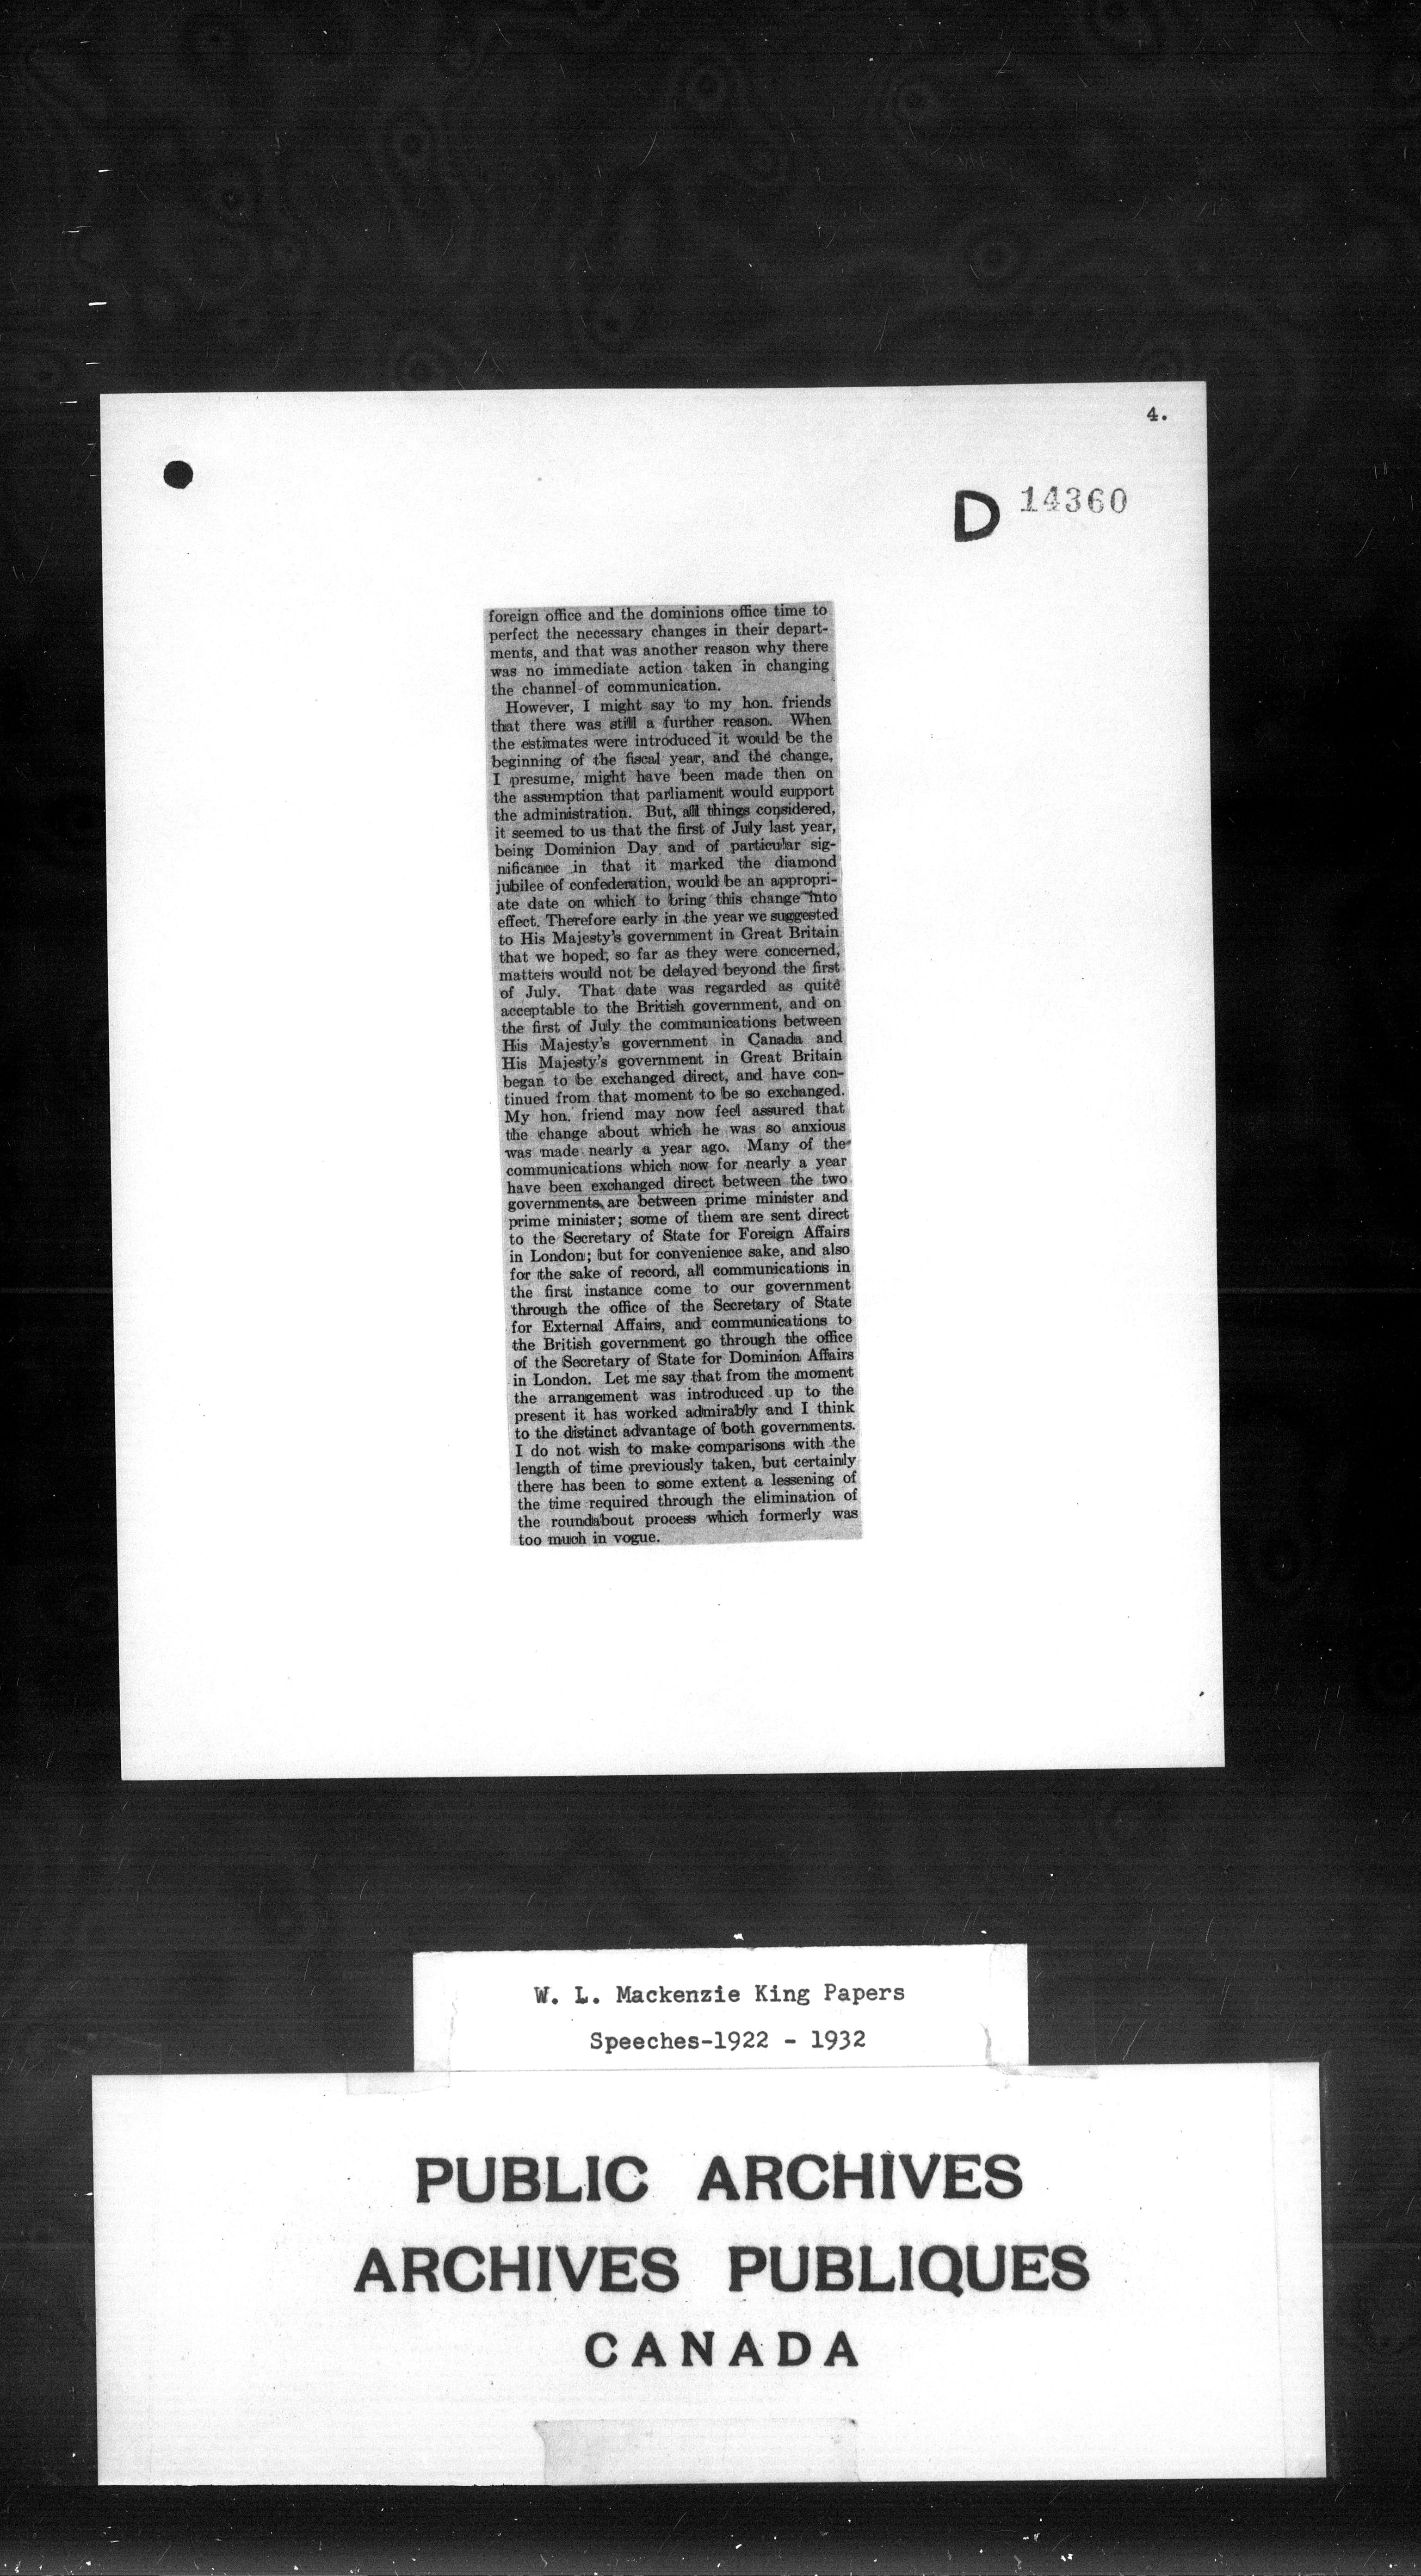 4.
D 14360
foreign office and the dominions office time to
perfect the necessary changes in their depart-
ments, and that was another reason why there
was no immediate action taken in changing
the channel of communication.
However, I might say to my hon. friends
that there was still a further reason. When
the estimates were introduced it would be the
beginning of the fiscal year, and the change,
I presume, might have been made then on
the assumption that parliament would support
the administration. But, all things considered,
it seemed to us that the first of July last year,
being Dominion Day and of particular sig-
nificance in that it marked the diamond
jubilee of confederation, would be an appropri-
ate date on which to bring this change into
effect. Therefore early in the year we suggested
to His Majesty's government in Great Britain
that we hoped, so far as they were concerned,
matters would not be delayed beyond the first
of July. That date was regarded as quite
acceptable to the British government, and on
the first of July the communications between
His Majesty's government in Canada and
His Majesty's government in Great Britain
began to be exchanged direct, and have con-
tinued from that moment to be so exchanged.
My hon. friend may now feel assured that
the change about which he was so anxious
was made nearly a year ago. Many of the
communications which now for nearly a year
have been exchanged direct between the two
governments are between prime minister and
prime minister; some of them are sent direct
to the Secretary of State for Foreign Affairs
in London; but for convenience sake, and also
for the sake of record, all communications in
the first instance come to our government
through the office of the Secretary of State
for External Affairs, and communications to
the British government go through the office
of the Secretary of State for Dominion Affairs
in London. Let me say that from the moment
the arrangement was introduced up to the
present it has worked admirably and I think
to the distinct advantage of both governments.
I do not wish to make comparisons with the
length of time previously taken, but certainly
there has been to some extent a lessening of
the time required through the elimination of
the roundabout process which formerly was
too much in vogue.
W. L. Mackenzie King Papers
Speeches-1922 - 1932
PUBLIC ARCHIVES
ARCHIVES PUBLIQUES
CANADA